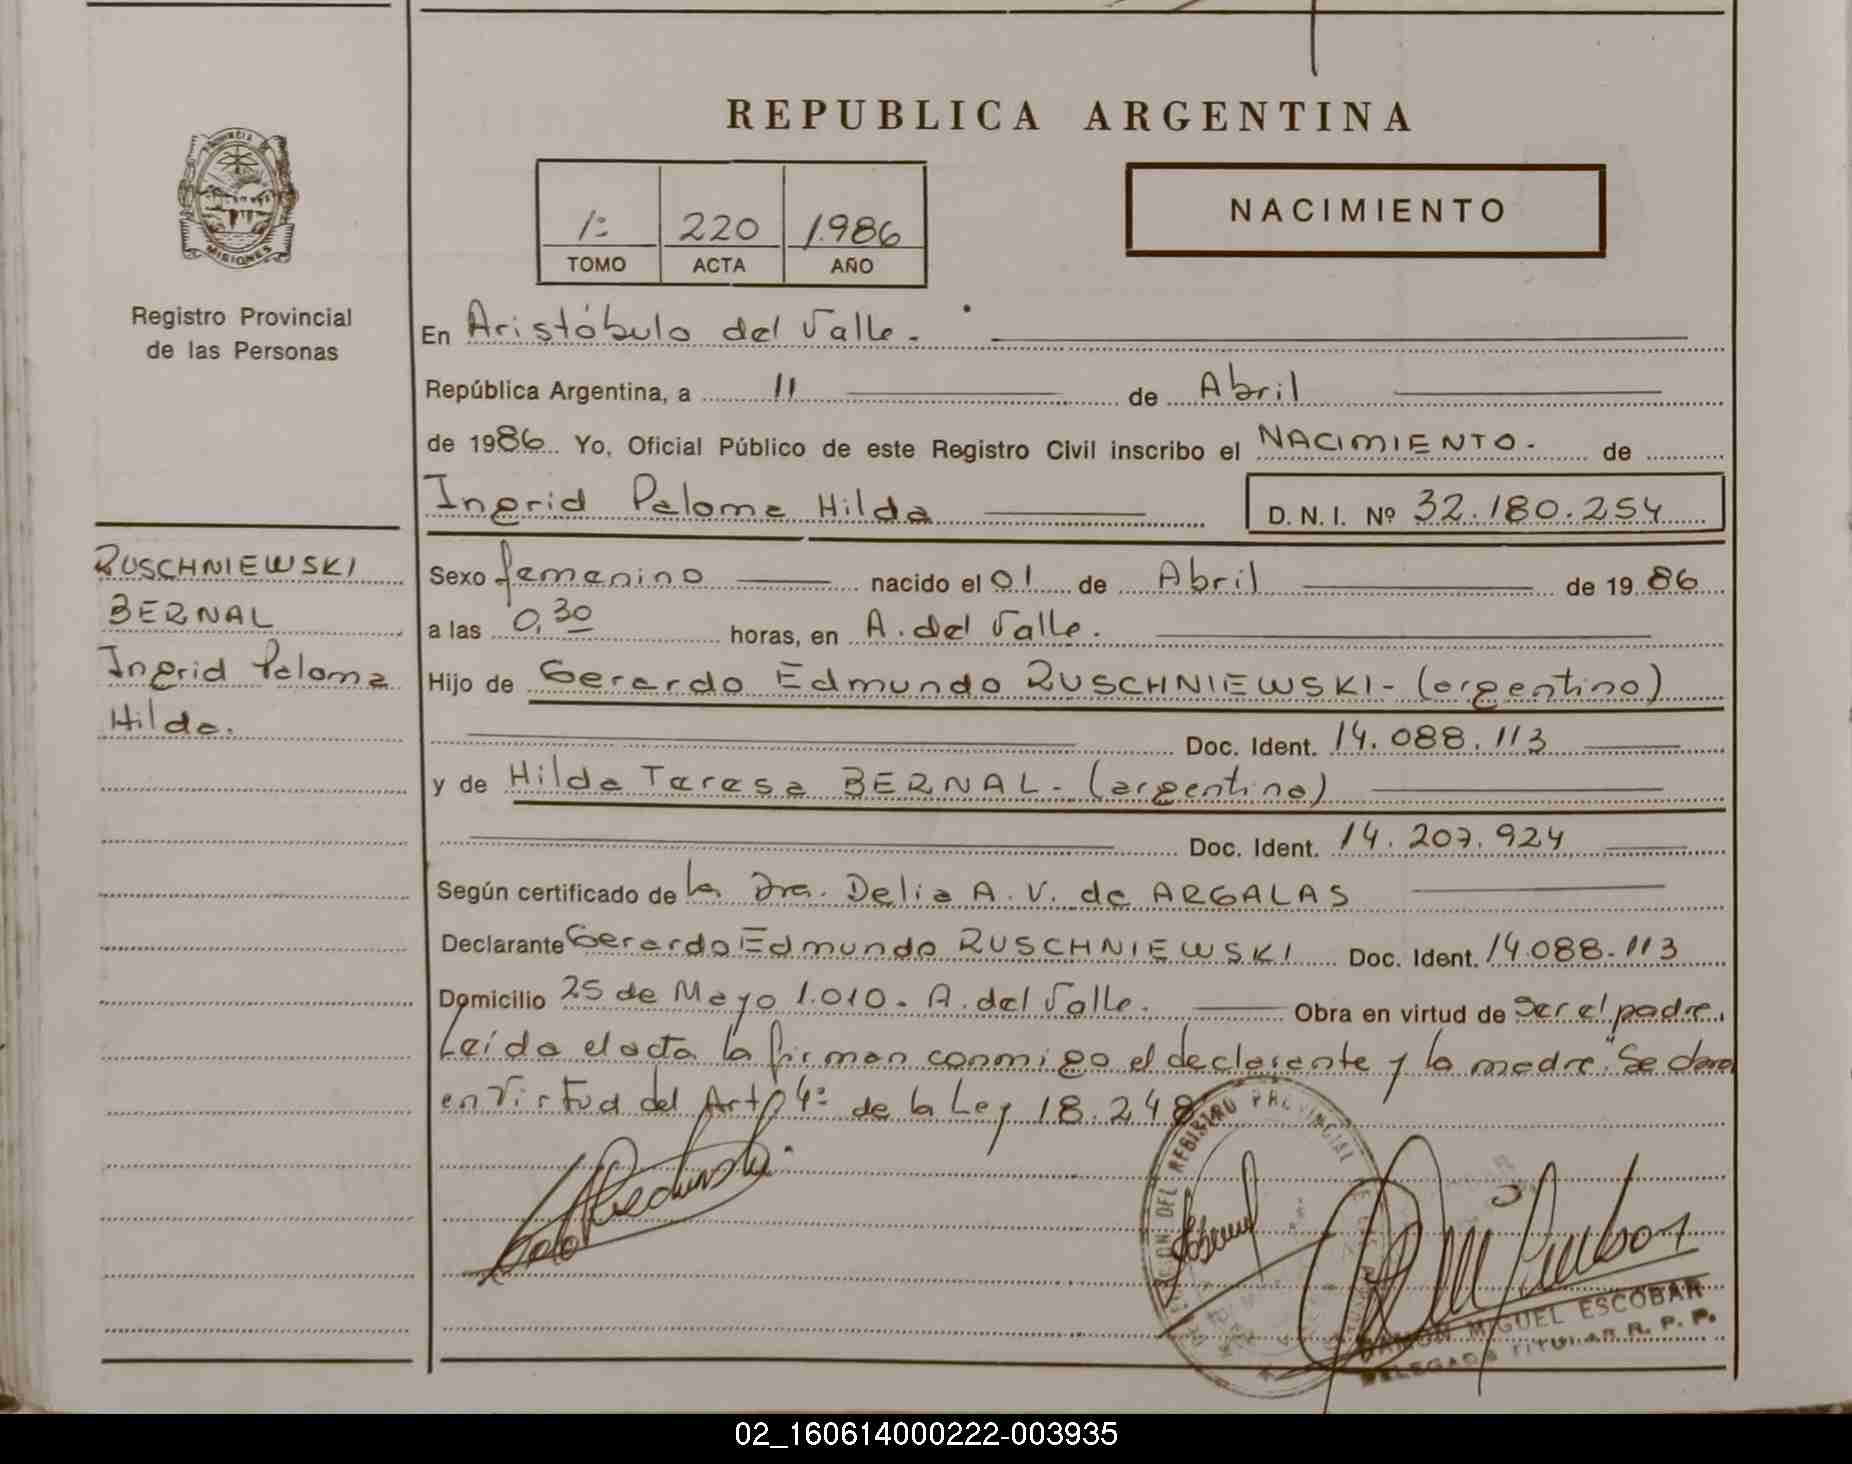 REPUBLICA ARGENTINA
PROVINCIA DE
MISIONES
Registro Provincial
de las Personas
1º 220 1.986
TOMO ACTA AÑO
NACIMIENTO
En Aristóbulo del Valle.-
República Argentina, a 11 de Abril
de 1986 Yo, Oficial Público de este Registro Civil inscribo el NACIMIENTO.- de
Ingrid Paloma Hilda D.N.I. Nº 32.180.254
RUSCHNIEWSKI
BERNAL
Ingrid Paloma
Hilda.
Sexo femenino nacido el 01 de Abril de 1986
a las 0,30 horas, en A. del Valle.
Hijo de Gerardo Edmundo RUSCHNIEWSKI- (argentino)
Doc. Ident. 14.088.113
y de Hilda Teresa BERNAL- (argentina)
Doc. Ident. 14.207.924
Según certificado de la Dra. Delia A. V. de ARGALAS
Declarante Gerardo Edmundo RUSCHNIEWSKI Doc. Ident. 14.088.113
Domicilio 25 de Mayo 1.010- A. del Valle. Obra en virtud de ser el padre,
Leída el acta la firman conmigo el declarante y la madre "Se
en virtud del Art. 4º de la Ley 18.248"
DEL REGISTRO PROVINCIAL
RAMON MIGUEL ESCOBAR
DELEGADO TITULAR R. P. P.
02_160614000222-003935